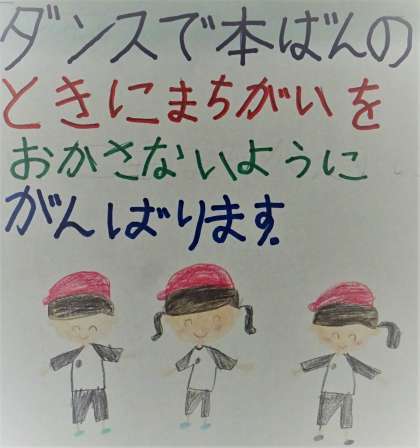 ダンスで本ばんの
ときにまちがいを
おかさないように
がんばります。